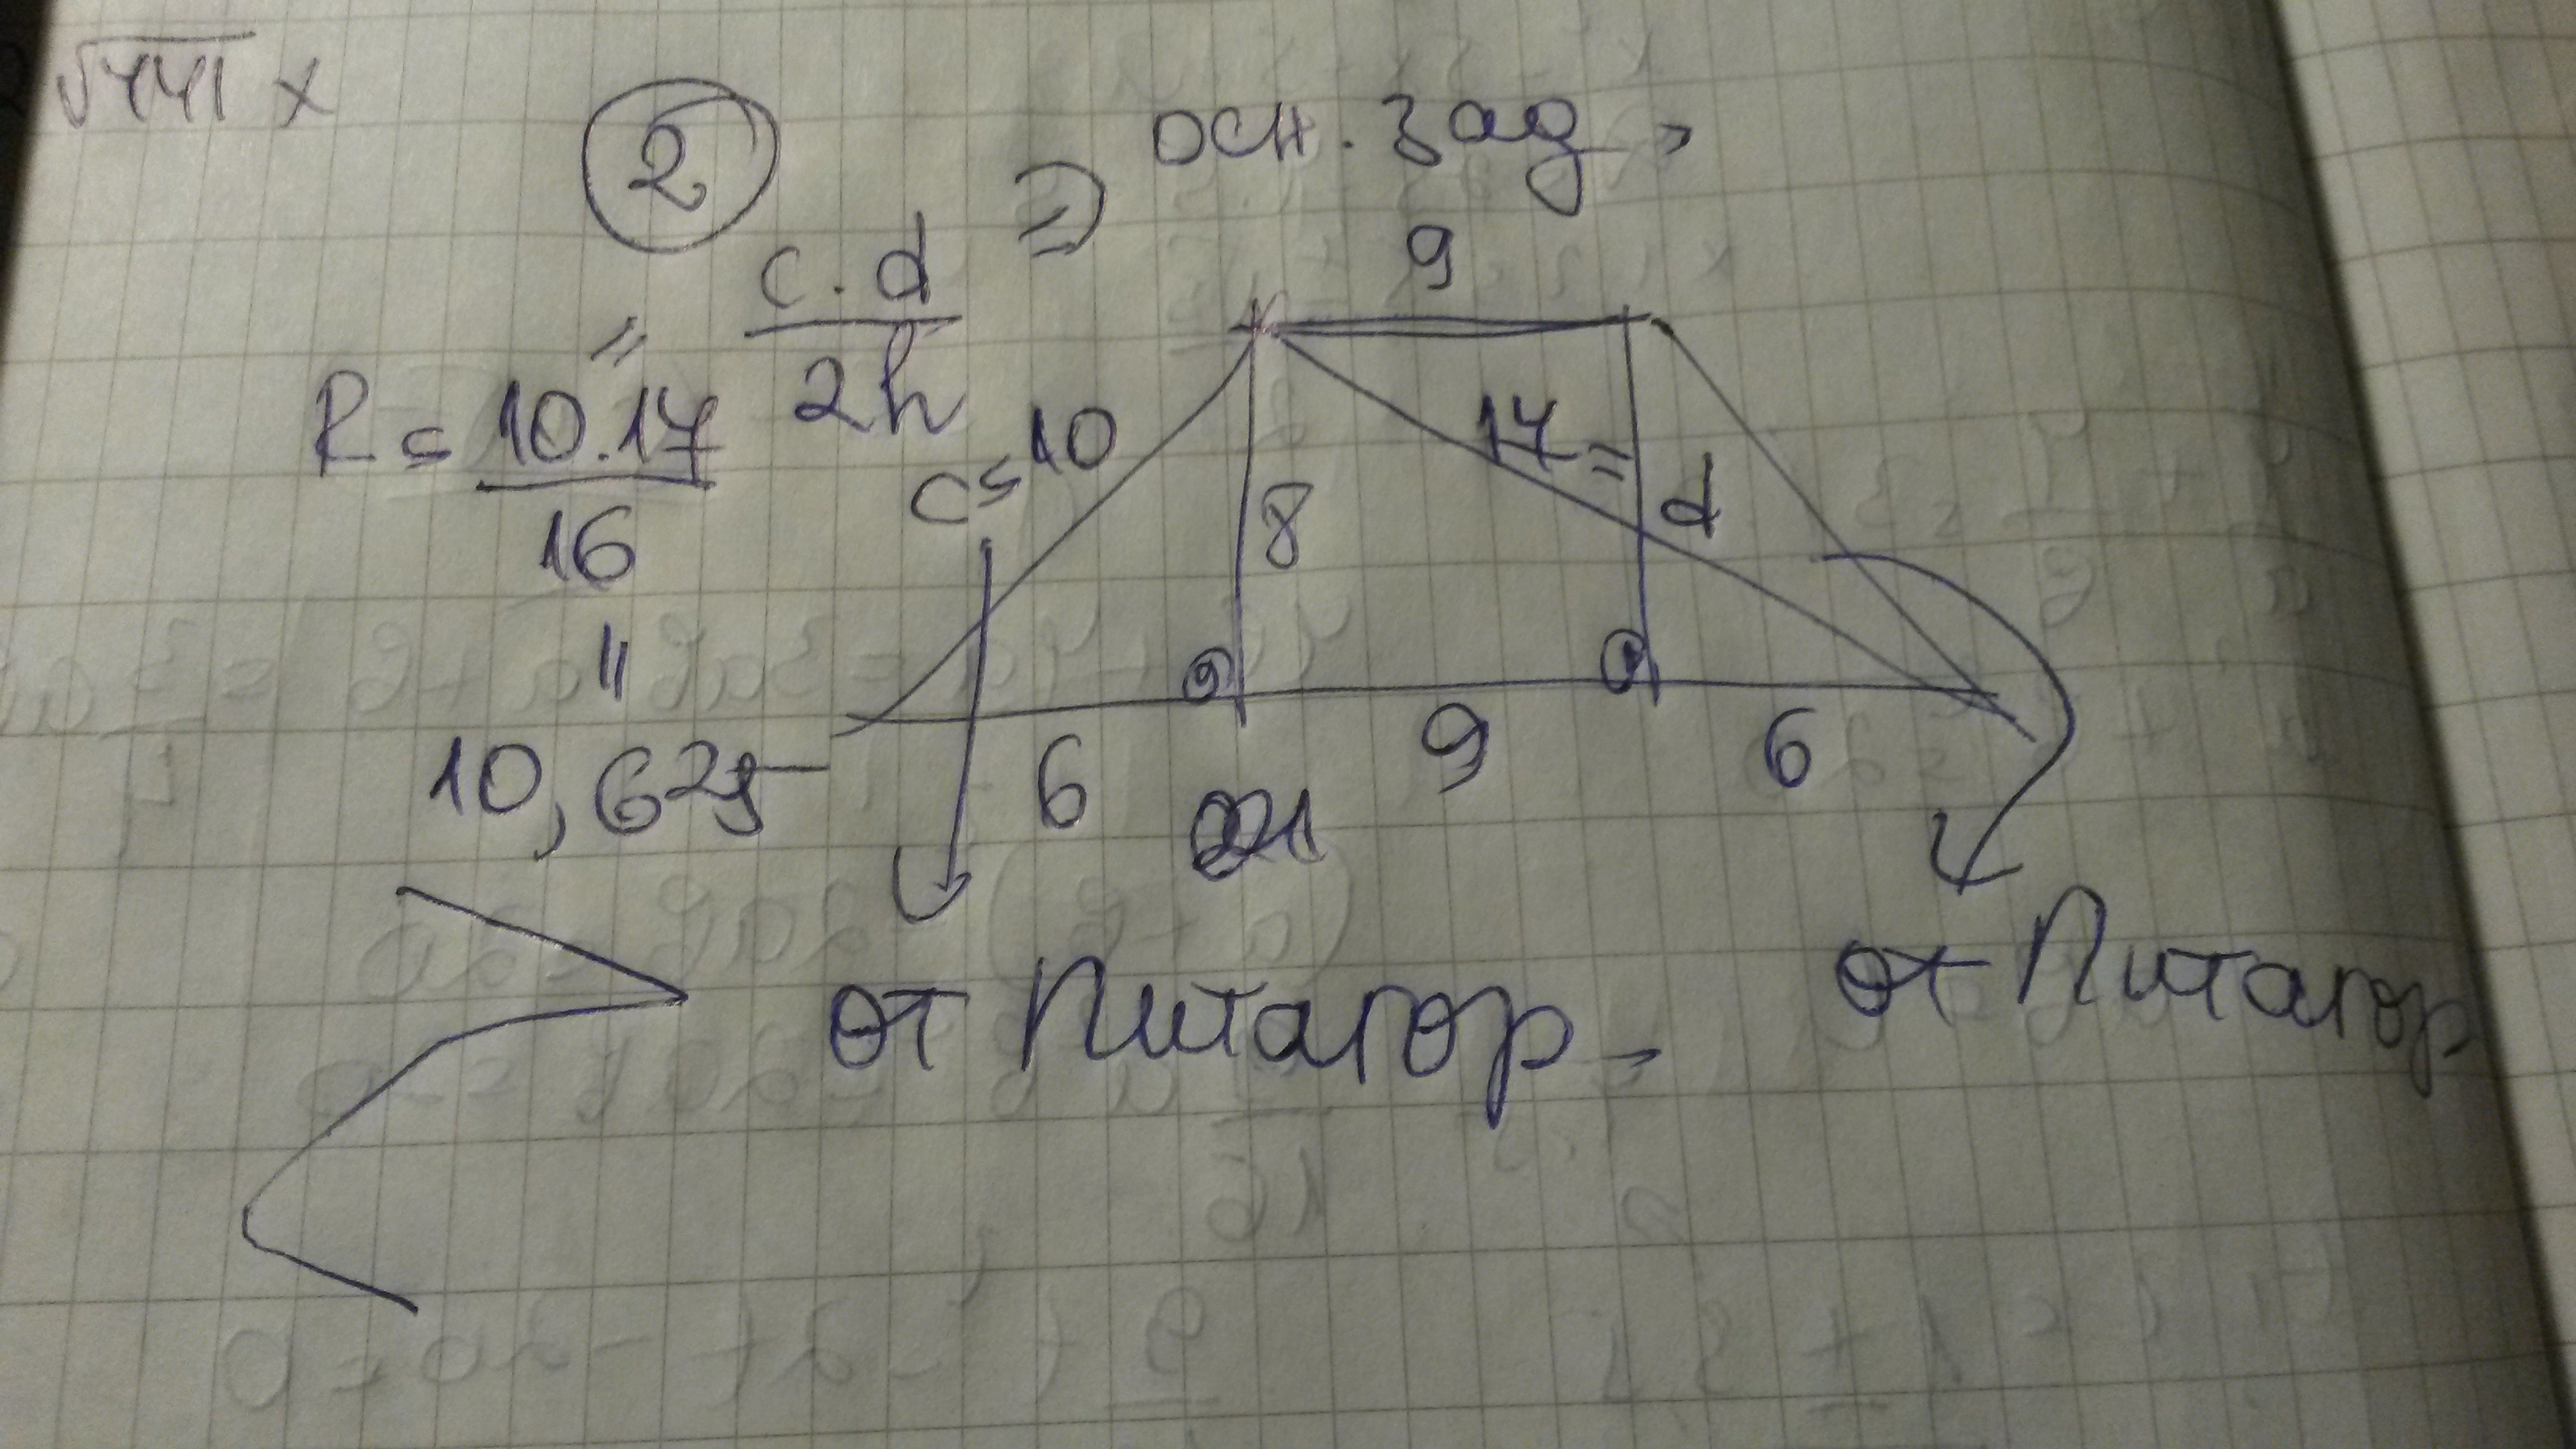 √441 x
2
⇒ осн. зад.
c.d
2h
=
R = 10.17
16
=
10,625
9
c = 10
8
17 =
d
6
9
6
21
от Питагор.
от Питагор